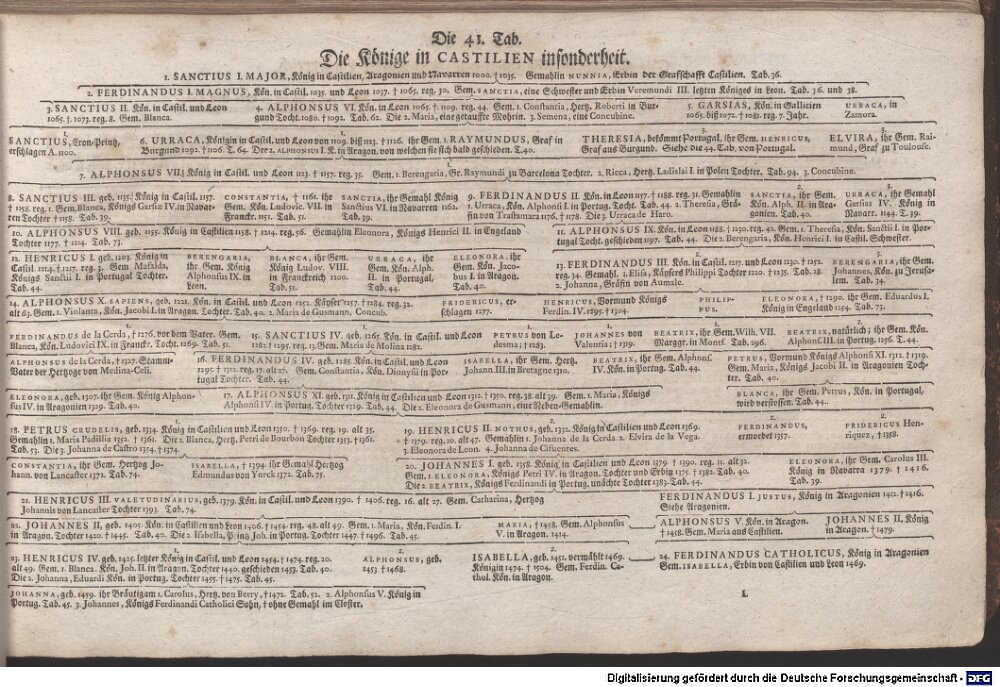 Die 41. Tab.
Die Könige in CASTILIEN insonderheit.
1. SANCTIUS I. MAJOR, König in Castilien, Aragonien und Navarren 1000. † 1035. Gemahlin NUNNIA, Erbin der Grafschafft Castilien. Tab. 36.
2. FERDINANDUS I. MAGNUS, Kön. in Castil. 1035. und Leon 1037. † 1065. reg. 30. Gem. SANCTIA, eine Schwester und Erbin Veremundi III. letzten Königes in Leon. Tab. 36. und 38.
3. SANCTIUS II. Kön. in Castil. und Leon
1065. † 1073. reg. 8. Gem. Blanca.
4. ALPHONSUS VI. Kön. in Leon 1065. † 1109. reg. 44. Gem. 1. Constantia, Hertz. Roberti in Bur-
gund Tocht. 1080. † 1092. Tab. 62. Die 2. Maria, eine getauffte Mohrin. 3. Semena, eine Concubine.
5. GARSIAS, Kön. in Gallicien
1065. biß 1072. † 1081. reg. 7. Jahr.
URRACA, in
Zamora.
1.
SANCTIUS, Cron-Printz,
erschlagen A. 1100.
1.
6. URRACA, Königin in Castil. und Leon von 1109. biß 1113. † 1126. ihr Gem. 1. RAYMUNDUS, Graf in
Burgund 1092. † 1106. T. 64. Der 2. ALPHONSUS I. K. in Aragon. von welchen sie sich bald geschieden. T. 40.
3.
THERESIA, bekömmt Portugal. ihr Gem. HENRICUS,
Graf aus Burgund. Siehe die 44. Tab. von Portugal.
3.
ELVIRA, ihr Gem. Rai-
mund, Graf zu Toulouse.
1.
7. ALPHONSUS VII.) König in Castil. und Leon 1123. † 1157. reg. 35. Gem. 1. Berengaria, Gr. Raymundi zu Barcelona Tochter. 2. Ricca, Hertz. Ladislai I. in Polen Tochter. Tab. 94. 3. Concubine.
1.
8. SANCTIUS III. geb. 1135. König in Castil. 1157.
† 1158. reg. 1. Gem. Blanca, Königs Garsiæ IV. in Navar-
ren Tochter † 1158. Tab. 39.
1.
CONSTANTIA, † 1161. ihr
Gem. Kön. Ludovic. VII. in
Franckr. 1151. Tab. 51.
1.
SANCTIA, ihr Gemahl König
Sanctius VI. in Navarren 1162.
Tab. 39.
1.
9. FERDINANDUS II. Kön. in Leon 1157. † 1188. reg. 31. Gemahlin
1. Urraca, Kön. Alphonsi I. in Portug. Tocht. Tab. 44. 2. Theresia, Grä-
fin von Trastamara 1176. † 1178. Die 3. Urraca de Haro.
2.
SANCTIA, ihr Gem.
Kön. Alph. II. in Ara-
gonien. Tab. 40.
3.
URRACA, ihr Gemahl
Garsias IV. König in
Navarr. 1144. T. 39.
10. ALPHONSUS VIII. geb. 1155. König in Castilien 1158. † 1214. reg. 56. Gemahlin Eleonora, Königs Henrici II. in Engeland
Tochter 1177. † 1214. Tab. 73.
11. ALPHONSUS IX. Kön. in Leon 1188. † 1230. reg. 42. Gem. 1. Theresia, Kön. Sanctii I. in Por-
tugal Tocht. geschieden 1197. Tab. 44. Die 2. Berengaria, Kön. Henrici I. in Castil. Schwester.
12. HENRICUS I. geb. 1203. König in
Castil. 1214. † 1217. reg. 3. Gem. Mafalda,
Königs Sanctii I. in Portugal Tochter.
Tab. 44.
BERENGARIA,
ihr Gem. König
Alphonsus IX. in
Leon.
BLANCA, ihr Gem.
König Ludov. VIII.
in Franckreich 1200.
Tab. 51.
URRACA, ihr
Gem. Kön. Alph.
II. in Portugal.
Tab. 44.
ELEONORA, ihr
Gem. Kön. Jaco-
bus I. in Aragon.
Tab. 40.
2.
13. FERDINANDUS III. Kön. in Castil. 1217. und Leon 1230. † 1252.
reg. 34. Gemahl. 1. Elisa, Käysers Philippi Tochter 1220. † 1235. Tab. 28.
2. Johanna, Gräfin von Aumale.
2.
BERENGARIA, ihr Gem.
Johannes, Kön. zu Jerusa-
lem. Tab. 34.
14. ALPHONSUS X. SAPIENS, geb. 1221. Kön. in Castil. und Leon 1252. Käyser 1257. † 1284. reg. 32.
alt 63. Gem. 1. Violanta, Kön. Jacobi I. in Aragon. Tochter. Tab. 40. 2. Maria de Gusmann, Concub.
FRIDERICUS, er-
schlagen 1277.
HENRICUS, Vormund Königs
Ferdin. IV. 1295. † 1304.
PHILIP-
PUS.
2.
ELEONORA, † 1290. ihr Gem. Eduardus I.
König in Engeland 1254. Tab. 73.
1.
FERDINANDUS de la Cerda, † 1276. vor dem Vater. Gem.
Blanca, Kön. Ludovici IX. in Franckr. Tocht. 1269. Tab. 51.
1.
15. SANCTIUS IV. geb. 1265. Kön. in Castil. und Leon
1282. † 1295. reg. 13. Gem. Maria de Molina 1282.
1.
PETRUS von Le-
desma; † 1283.
1.
JOHANNES von
Valentia; † 1319.
1.
BEATRIX, ihr Gem. Wilh. VII.
Marggr. in Montf. Tab. 296.
2.
BEATRIX, natürlich; ihr Gem. Kön.
Alphons. III. in Portug. 1256. T. 44.
ALPHONSUS de la Cerda, † 1327. Stamm-
Vater der Hertzoge von Medina-Celi.
16. FERDINANDUS IV. geb. 1285. Kön. in Castil. und Leon
1295. † 1312. reg. 17. alt 27. Gem. Constantia, Kön. Dionysii in Por-
tugal Tochter. Tab. 44.
ISABELLA, ihr Gem. Hertz.
Johann. III. in Bretagne 1310.
BEATRIX, ihr Gem. Alphons.
IV. Kön. in Portug. Tab. 44.
PETRUS, Vormund Königs Alphonsi XI. 1312. † 1319.
Gem. Maria, Königs Jacobi II. in Aragonien Toch-
ter. Tab. 40.
ELEONORA, geb. 1307. ihr Gem. König Alphon-
sus IV. in Aragonien 1329. Tab. 40.
17. ALPHONSUS XI. geb. 1311. König in Castilien und Leon 1312. † 1350. reg. 38. alt 39. Gem. 1. Maria, Königs
Alphonsi IV. in Portug. Tochter 1329. Tab. 44. Die 2. Eleonora de Gusmann, eine Neben-Gemahlin.
BLANCA, ihr Gem. Petrus, Kön. in Portugal,
wird verstossen. Tab. 44.
1.
18. PETRUS CRUDELIS, geb. 1334. König in Castilien und Leon 1350. † 1369. reg. 19. alt 35.
Gemahlin 1. Maria Padillia 1352. † 1361. Die 2. Blanca, Hertz. Petri de Bourbon Tochter 1353. † 1361.
Tab. 53. Die 3. Johanna de Castro 1354. † 1374.
2.
19. HENRICUS II. NOTHUS, geb. 1332. König in Castilien und Leon 1369.
† 1379. reg. 10. alt 47. Gemahlin 1. Johanna de la Cerda 2. Elvira de la Vega.
3. Eleonora de Leon. 4. Johanna de Cifuentes.
2.
FERDINANDUS,
ermordet 1357.
2.
FRIDERICUS Hen-
riquez, † 1358.
CONSTANTIA, ihr Gem. Hertzog Jo-
hann. von Lancaster 1372. Tab. 74.
ISABELLA, † 1394. ihr Gemahl Hertzog
Edmundus von Yorck 1372. Tab. 75.
20. JOHANNES I. geb. 1358. König in Castilien und Leon 1379. † 1390. reg. 11. alt 32.
Gem. 1. ELEONORA, Königs Petri IV. in Aragon. Tochter und Erbin 1375. † 1382. Tab. 40.
Die 2. BEATRIX, Königs Ferdinandi in Portug. unächte Tochter 1383. Tab. 44.
ELEONORA, ihr Gem. Carolus III.
König in Navarra 1379. † 1416.
Tab. 39.
21. HENRICUS III. VALETUDINARIUS, geb. 1379. Kön. in Castil. und Leon 1390. † 1406. reg. 16. alt 27. Gem. Catharina, Hertzog
Johannis von Lancaster Tochter 1393. Tab. 74.
FERDINANDUS I. JUSTUS, König in Aragonien 1412. † 1416.
Siehe Aragonien.
22. JOHANNES II. geb. 1405. Kön. in Castilien und Leon 1406. † 1454. reg. 48. alt 49. Gem. 1. Maria, Kön. Ferdin. I.
in Aragon. Tochter 1420. † 1445. Tab. 40. Die 2. Isabella, Printz Joh. in Portug. Tochter 1447. † 1496. Tab. 45.
MARIA, † 1458. Gem. Alphonsus
V. in Aragon. 1414.
ALPHONSUS V. Kön. in Aragon.
† 1458. Gem. Maria aus Castilien.
JOHANNES II. König
in Aragon. † 1479.
1.
23. HENRICUS IV. geb. 1425. letzter König in Castil. und Leon 1454. † 1474. reg. 20.
alt 49. Gem. 1. Blanca. Kön. Joh. II. in Aragon. Tochter 1440. geschieden 1453. Tab. 40.
Die 2. Johanna, Eduardi Kön. in Portug. Tochter 1455. † 1475. Tab. 45.
2.
ALPHONSUS, geb.
1453 † 1468.
2.
ISABELLA, geb. 1451. vermählt 1469.
Königin 1474. † 1504. Gem. Ferdin. Ca-
thol. Kön. in Aragon.
24. FERDINANDUS CATHOLICUS, König in Aragonien
Gem. ISABELLA, Erbin von Castilien und Leon 1469.
JOHANNA, geb. 1459. ihr Bräutigam 1. Carolus, Hertz. von Berry, † 1472. Tab. 52. 2. Alphonsus V. König in
Portug. Tab. 45. 3. Johannes, Königs Ferdinandi Catholici Sohn, † ohne Gemahl im Closter.
L
Digitalisierung gefördert durch die Deutsche Forschungsgemeinschaft - DFG